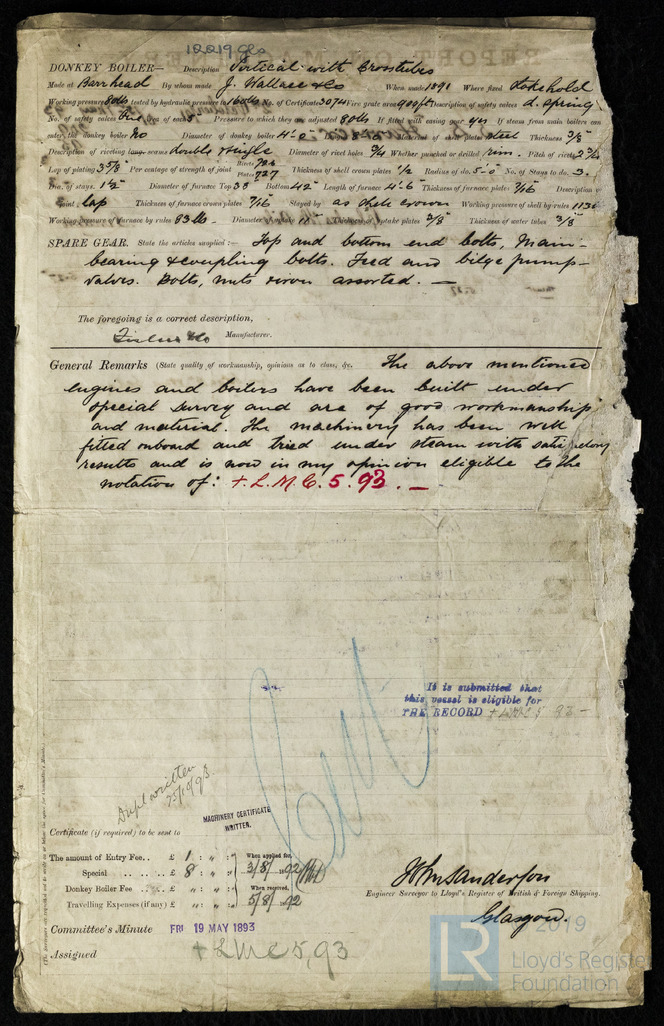 12219 Gls
DONKEY BOILER— Description Vertical with Crosstubes
Made at Barrhead By whom made J. Wallace & Co When made 1891 Where fixed Stokehold
Working pressure 80lbs tested by hydraulic pressure to 160lbs No. of Certificate 3074 Fire grate area Description of safety valves d. Spring
No. of safety valves two Area of each Pressure to which they are adjusted 80lbs If fitted with easing gear yes If steam from main boilers can
enter the donkey boiler No Diameter of donkey boiler 4'-0" of shell plates steel Thickness 3/8
Description of riveting long. seams double & single Diameter of rivet holes 3/4 Whether punched or drilled rim. Pitch of rivets 2 3/4
Lap of plating 3 5/8 Per centage of strength of joint Rivets 72.6 Plates 72.7 Thickness of shell crown plates 1/2 Radius of do. 5'-0" No. of Stays to do. 3.
Dia. of stays. 1 1/2 Diameter of furnace Top 38 Bottom 42 Length of furnace 4'-6 Thickness of furnace plates 7/16 Description of
joint lap Thickness of furnace crown plates 7/16 Stayed by as shell crown Working pressure of shell by rules 113
Working pressure of furnace by rules 83 lbs. Diameter of uptake Thickness of uptake plates 3/8 Thickness of water tubes 3/8
SPARE GEAR. State the articles supplied:— Top and bottom end bolts, Main-
bearing & coupling bolts. Feed and bilge pump-
valves. Bolts, nuts iron assorted. —
The foregoing is a correct description,
Manufacturer.
General Remarks (State quality of workmanship, opinions as to class, &c. The above mentioned
engines and boilers have been built under
special survey and are of good workmanship
and material. The machinery has been well
fitted onboard and tried under steam with satisfactory
results and is now in my opinion eligible to the
notation of: + L.M.C. 5. 93. —
It is submitted that
this vessel is eligible for
THE RECORD + LMC 5 93 -
Dupl written
MACHINERY CERTIFICATE
WRITTEN.
Certificate (if required) to be sent to
The amount of Entry Fee.. £ 1 : " : " When applied for,
Special .. .. .. £ 8 : " : " 3/8/ 92
Donkey Boiler Fee .. .. £ " : " : " When received,
Travelling Expenses (if any) £ " : " : " 5/8/ 92
Sanderson
Engineer Surveyor to Lloyd's Register of British & Foreign Shipping.
Glasgow.
Committee's Minute FRI 19 MAY 1893
Assigned + LMC 5,93
2019
LR
Lloyd's Register
Foundation